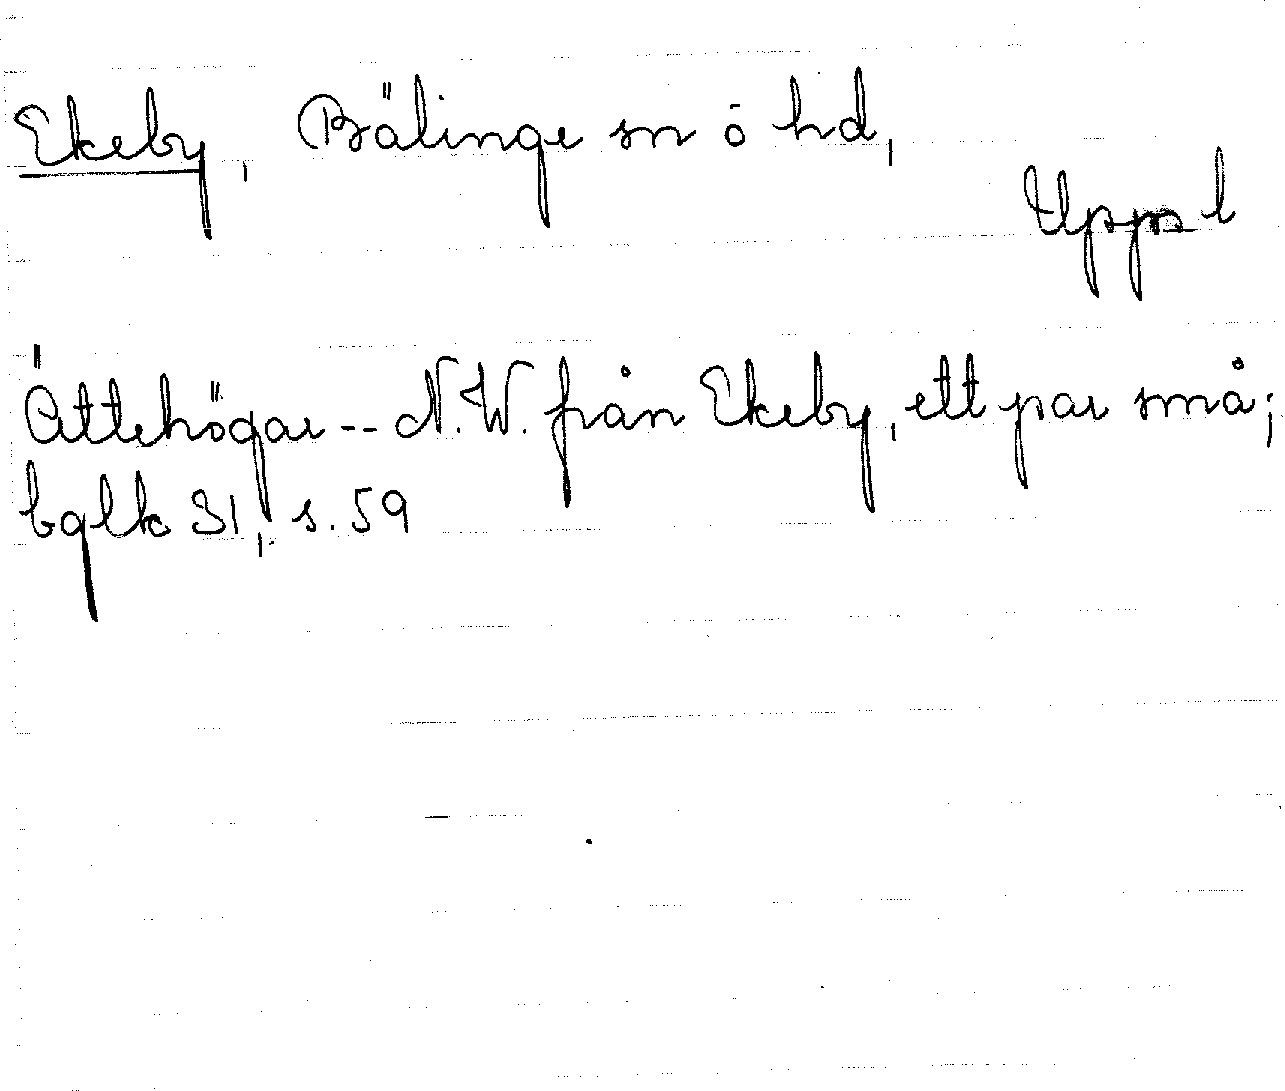 Ekeby, Bälinge sn ö hd,
Upps l
Ättehögar -- N.W. från Ekeby, ett par små;
bglk 31, s. 59